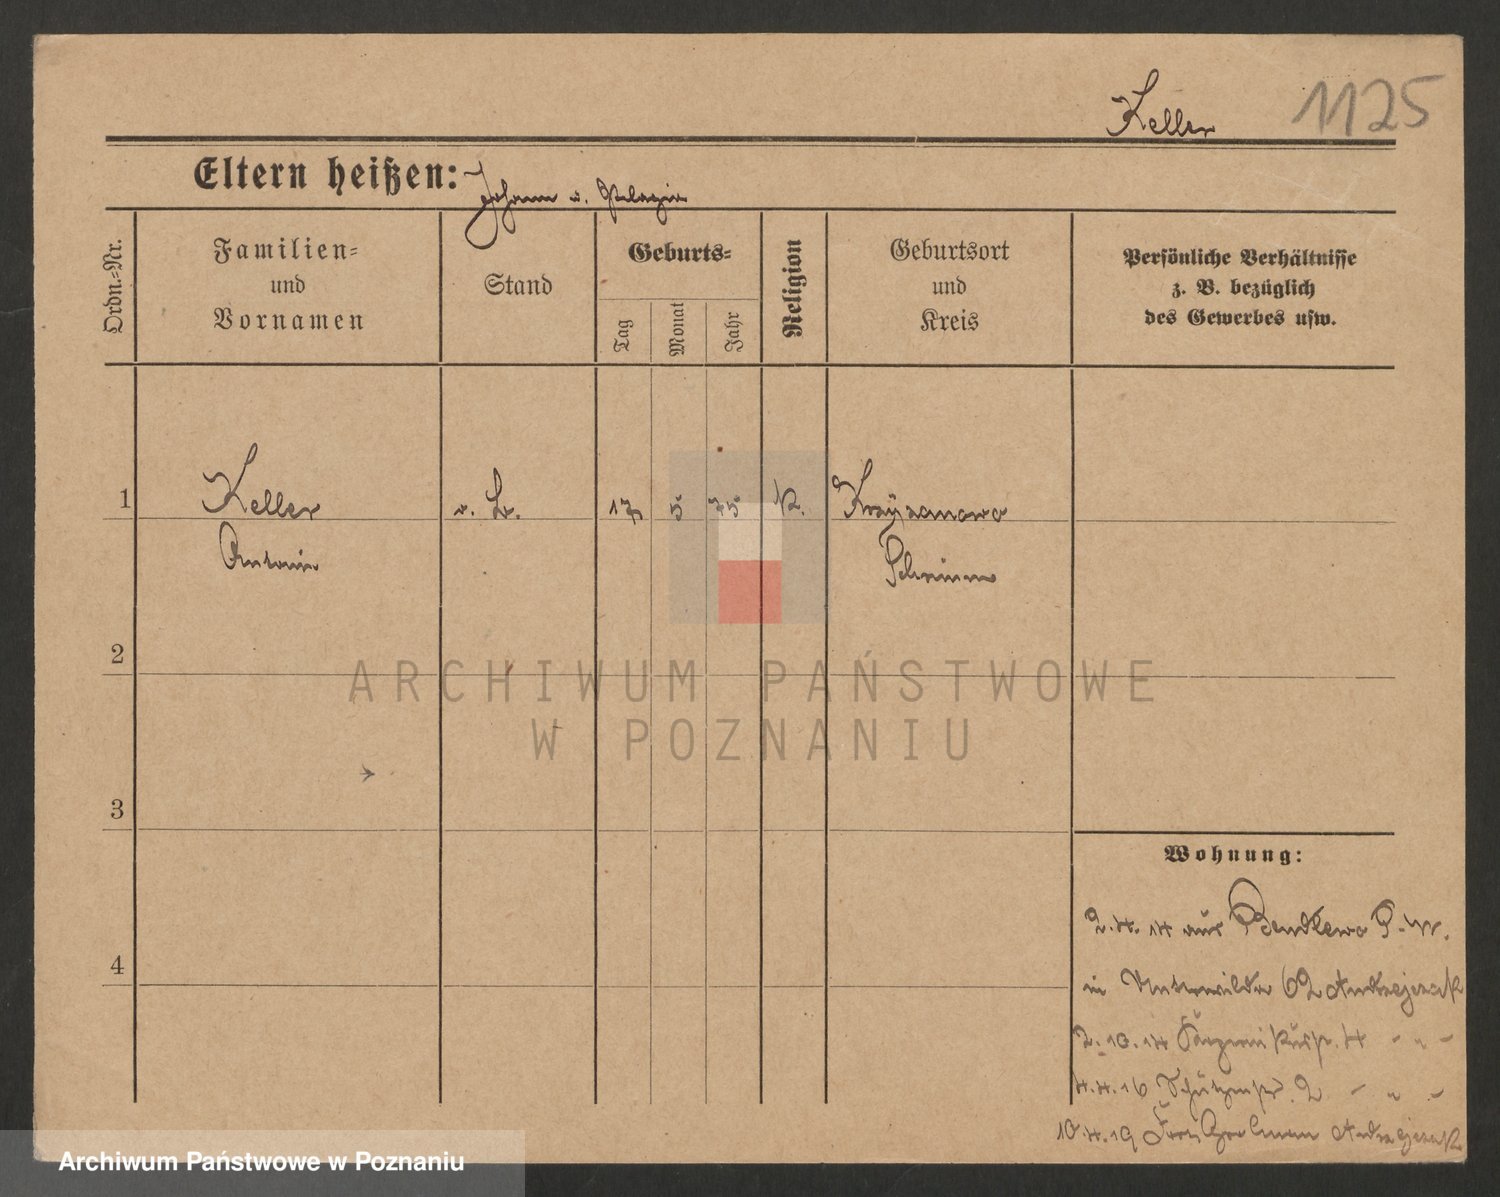 Keller 1125
Eltern heißen: Johann u. Pelagia
Ordn.-Nr.
Familien-
und
Vornamen
Stand
Geburts-
Tag
Monat
Jahr
Religion
Geburtsort
und
Kreis
Persönliche Verhältnisse
z. B. bezüglich
des Gewerbes usw.
1 Keller 17 5 75 K.
Antonie Schrimm
2
3
4
Wohnung:
2.4.14 aus Bendlewo P.-W.
in Unterwilda 62 Andrzejczak
2.10.14 4 - " -
4.4.16 Schützenstr. 2 - " -
10.4.19 Andrzejczak
ARCHIWUM PAŃSTWOWE
W POZNANIU
Archiwum Państwowe w Poznaniu